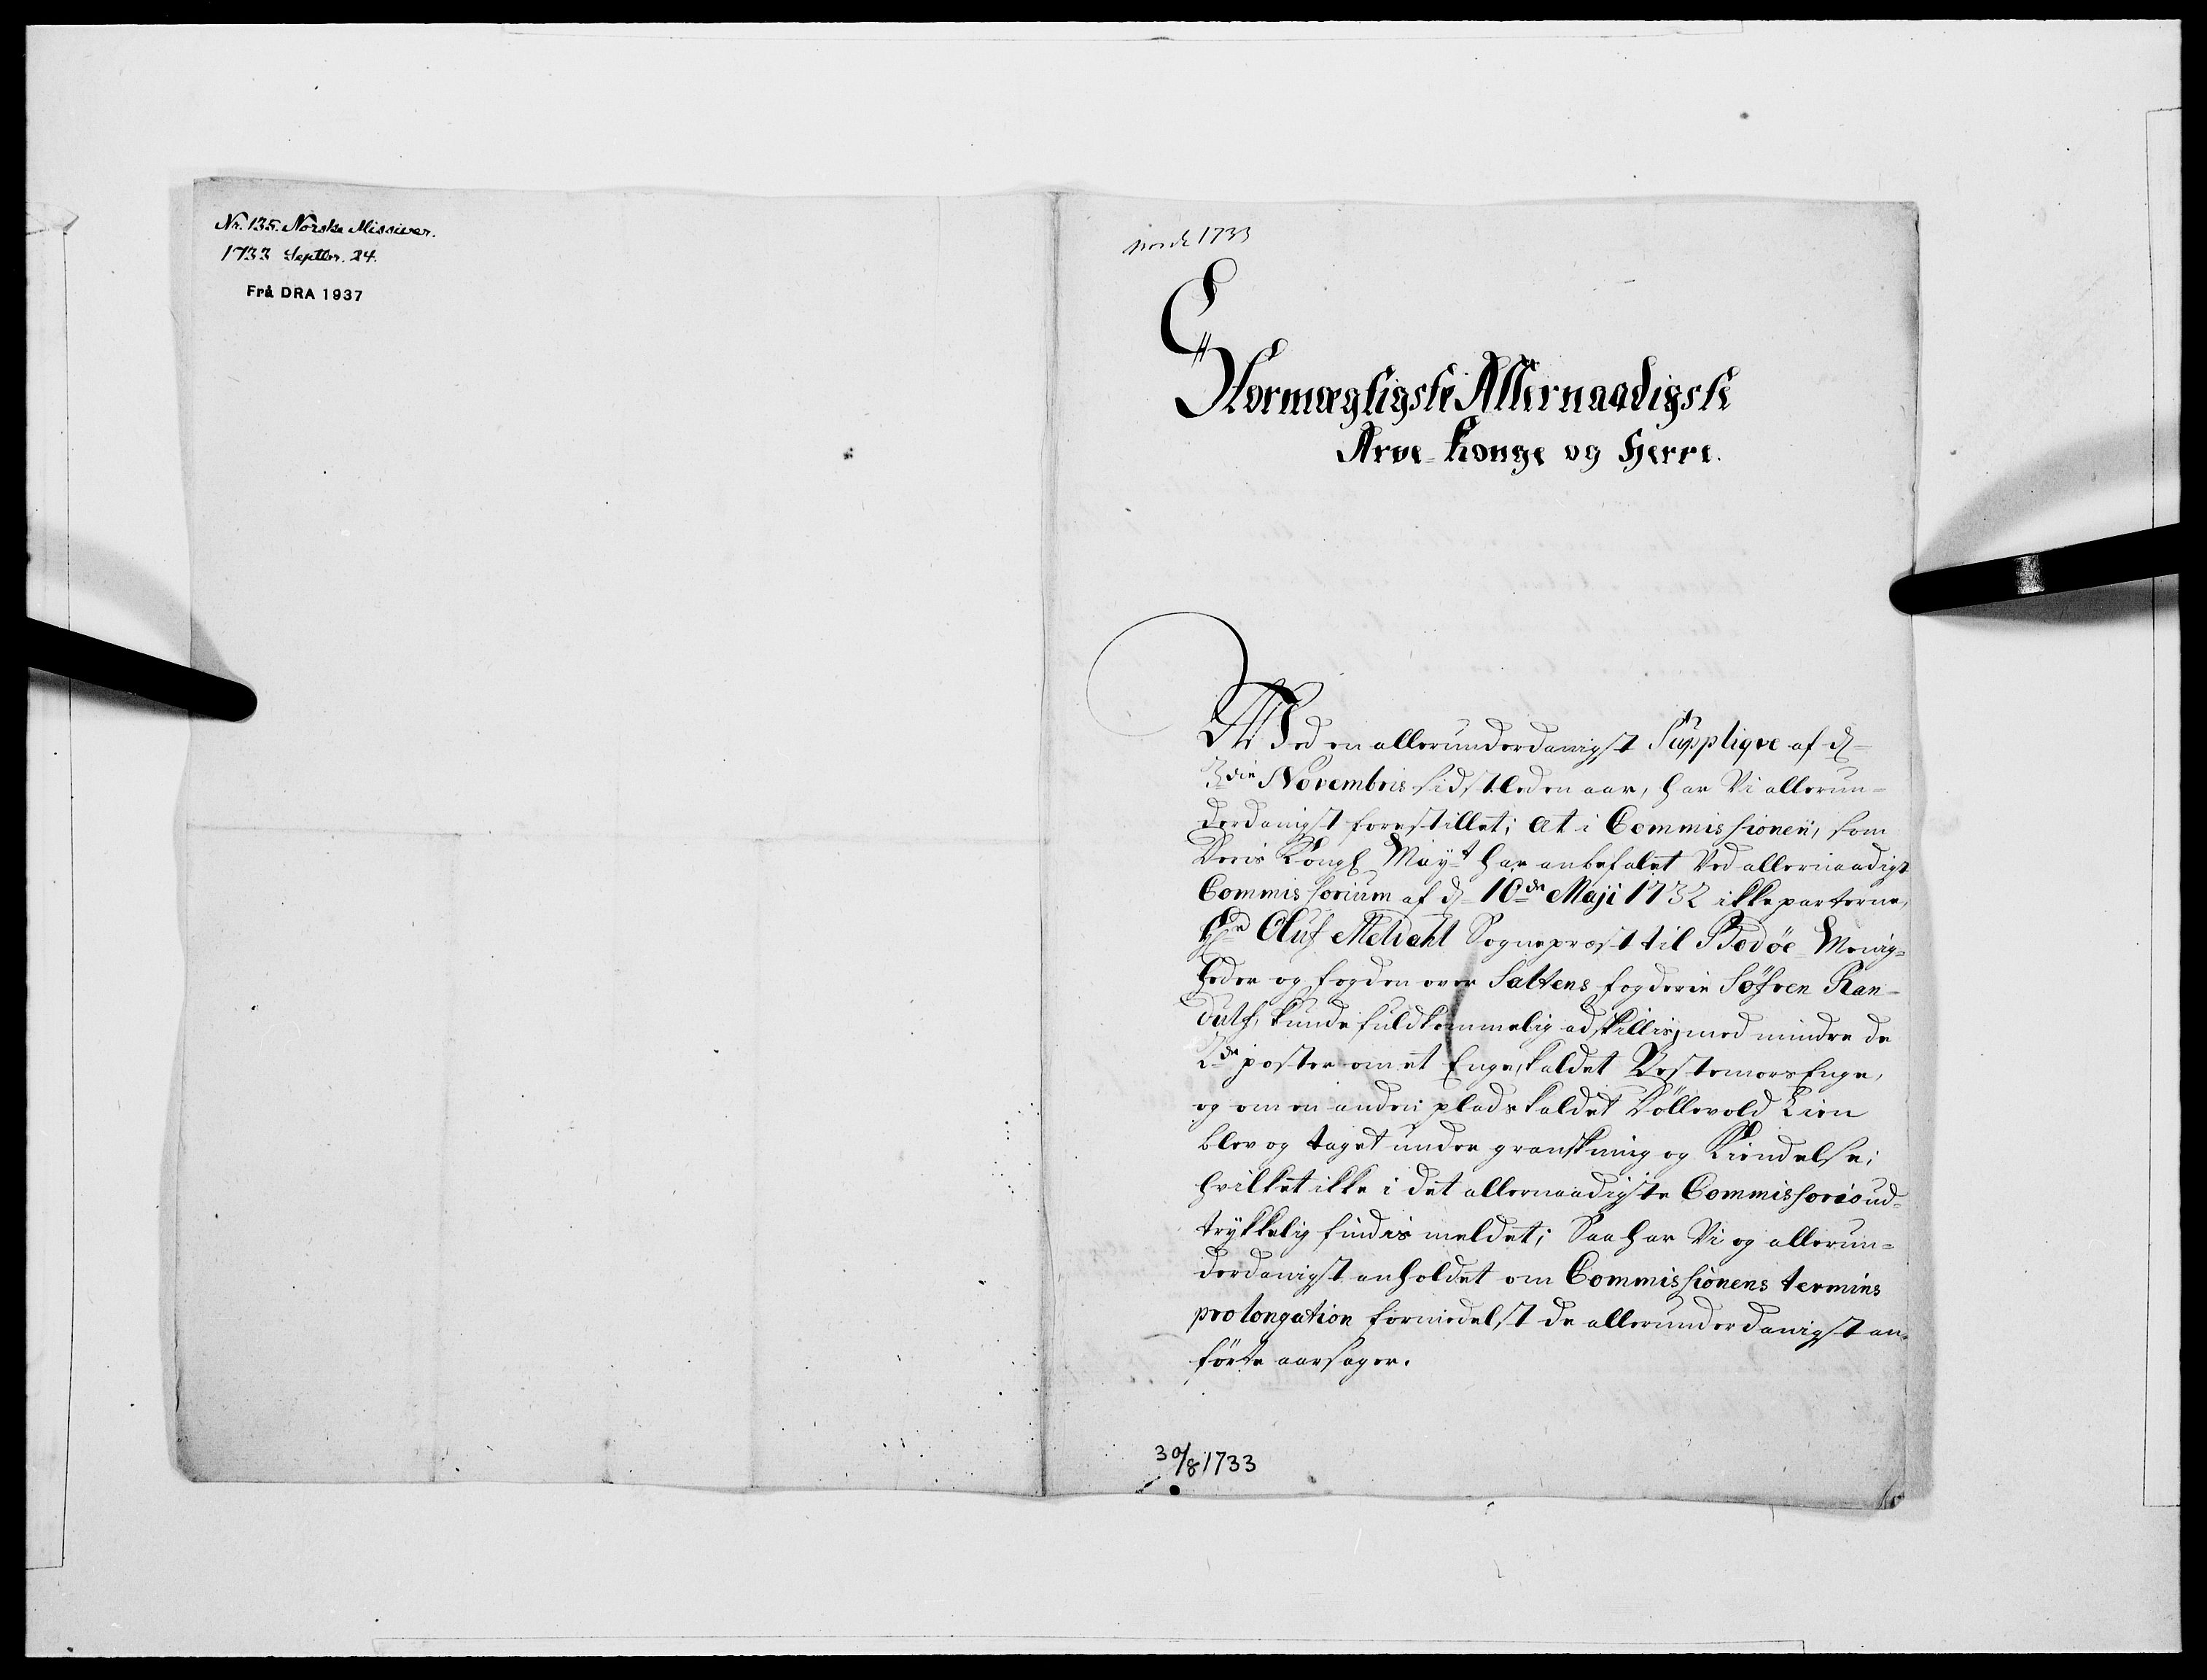 Nr. 135. Norske Missiver.
1733 Septbr. 24.
Frå DRA 1937
Norsk 1733
Stormægtigste Allernaadigste
Arve-Konge og Herre.
Ved en allerunderdanigst Supplique af d.
3die Novembris sidstleden aar, har Vi allerun=
derdanigst forestillet; at i Commissionen, som
Deris Kongl. Mayt har anbefalet Ved allernaadigst
Commissorium af d. 10de Maji 1732 ikke parterne,
Hr. Oluf Meldahl Sogneprest til Bodøe Menig=
heder og fogden over Saltens fogderie Søfren Ran=
dulf, kunde fuldkommelig adskillis, med mindre de
2de poster om et Enge, kaldet Vestemors Enge,
og om en anden plads kaldet Køllevold Lien
blev og taget under granskning og Kiendelse;
hvilket ikke i det allernaadigste Commissorio ud=
trykkelig findis meldet; Saa har Vi og allerun=
derdanigst anholdet om Commissionens termins
prolongation formedelst de allerunderdanigst an=
førte aarsager.
30/8 1733